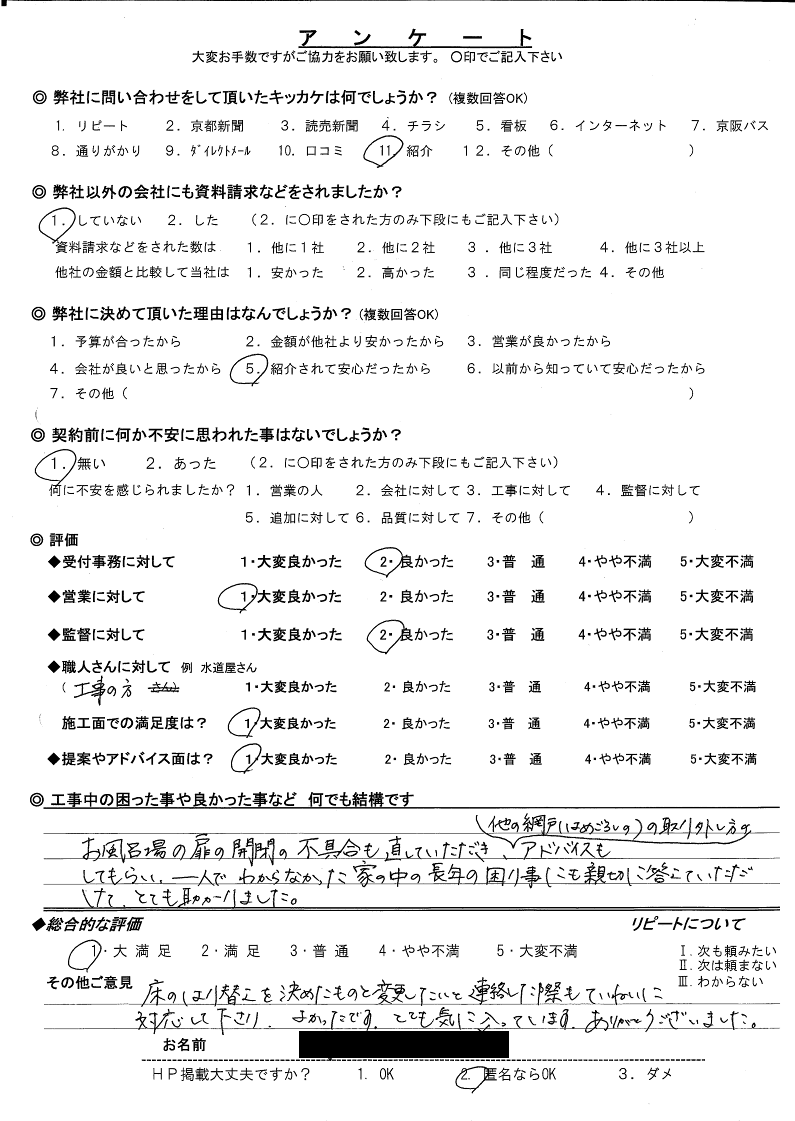 アンケート
大変お手数ですがご協力をお願い致します。 〇印でご記入下さい
◎ 弊社に問い合わせをして頂いたキッカケは何でしょうか？ (複数回答OK)
1. リピート 2．京都新聞 3．読売新聞 4．チラシ 5．看板 6．インターネット 7．京阪バス
8．通りがかり 9．ﾀﾞｲﾚｸﾄﾒｰﾙ 10．口コミ 11．紹介 12．その他（ ）
◎ 弊社以外の会社にも資料請求などをされましたか？
1．していない 2．した （２．に〇印をされた方のみ下段にもご記入下さい）
資料請求などをされた数は 1．他に１社 2．他に２社 3．他に３社 4．他に３社以上
他社の金額と比較して当社は 1．安かった 2．高かった 3．同じ程度だった 4．その他
◎ 弊社に決めて頂いた理由はなんでしょうか？ (複数回答OK)
1．予算が合ったから 2．金額が他社より安かったから 3．営業が良かったから
4．会社が良いと思ったから 5．紹介されて安心だったから 6．以前から知っていて安心だったから
7．その他（ ）
◎ 契約前に何か不安に思われた事はないでしょうか？
1．無い 2．あった （２．に〇印をされた方のみ下段にもご記入下さい）
何に不安を感じられましたか？ 1．営業の人 2．会社に対して 3．工事に対して 4．監督に対して
5．追加に対して 6．品質に対して 7．その他（ ）
◎ 評価
◆受付事務に対して 1・大変良かった 2・良かった 3・普 通 4・やや不満 5・大変不満
◆営業に対して 1・大変良かった 2・良かった 3・普 通 4・やや不満 5・大変不満
◆監督に対して 1・大変良かった 2・良かった 3・普 通 4・やや不満 5・大変不満
◆職人さんに対して 例 水道屋さん
（ 工事の方 さん） 1・大変良かった 2・良かった 3・普 通 4・やや不満 5・大変不満
施工面での満足度は？ 1・大変良かった 2・良かった 3・普 通 4・やや不満 5・大変不満
◆提案やアドバイス面は？ 1・大変良かった 2・良かった 3・普 通 4・やや不満 5・大変不満
◎ 工事中の困った事や良かった事など 何でも結構です
(他の網戸(はめごろしの)の取り外し方の
お風呂場の扉の開閉の不具合も直していただき、アドバイスも
してもらい、一人でわからなかった家の中の長年の困り事にも親切に答えていただ
けて、とても助かりました。
◆総合的な評価 リピートについて
1・大 満 足 2・満 足 3・普 通 4・やや不満 5・大変不満 Ⅰ. 次も頼みたい
Ⅱ. 次は頼まない
Ⅲ. わからない
その他ご意見 床のはり替えを決めたものと変更したいと連絡した際もていねいに
対応して下さり、よかったです。とても気に入っています。ありがとうございました。
お名前
ＨＰ掲載大丈夫ですか？ 1. OK 2. 匿名ならOK 3．ダメ